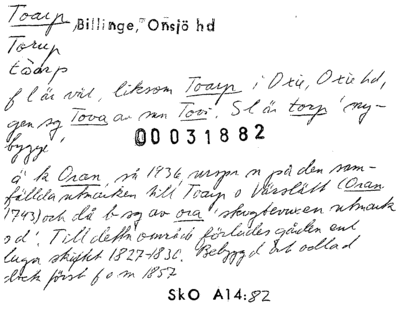 Toarp, Billinge, Onsjö hd
Torup
tåarp
f l är väl, liksom Toarp i Oxie, Oxie hd,
gen sg Tova av mn Tovi. Sl är torp 'ny-
bygge'.
00031882
ä k Oran, så 1936, urspr n på den sam-
fällda utmarken till Toarp o Värslätt (Oran
1743) och då b sg av ora 'skogbevuxen utmark
o d'. Till detta område förlades gården enl
laga skiftet 1827-1830. Bebyggd och odlad
dock först f o m 1857
SkO A14:82